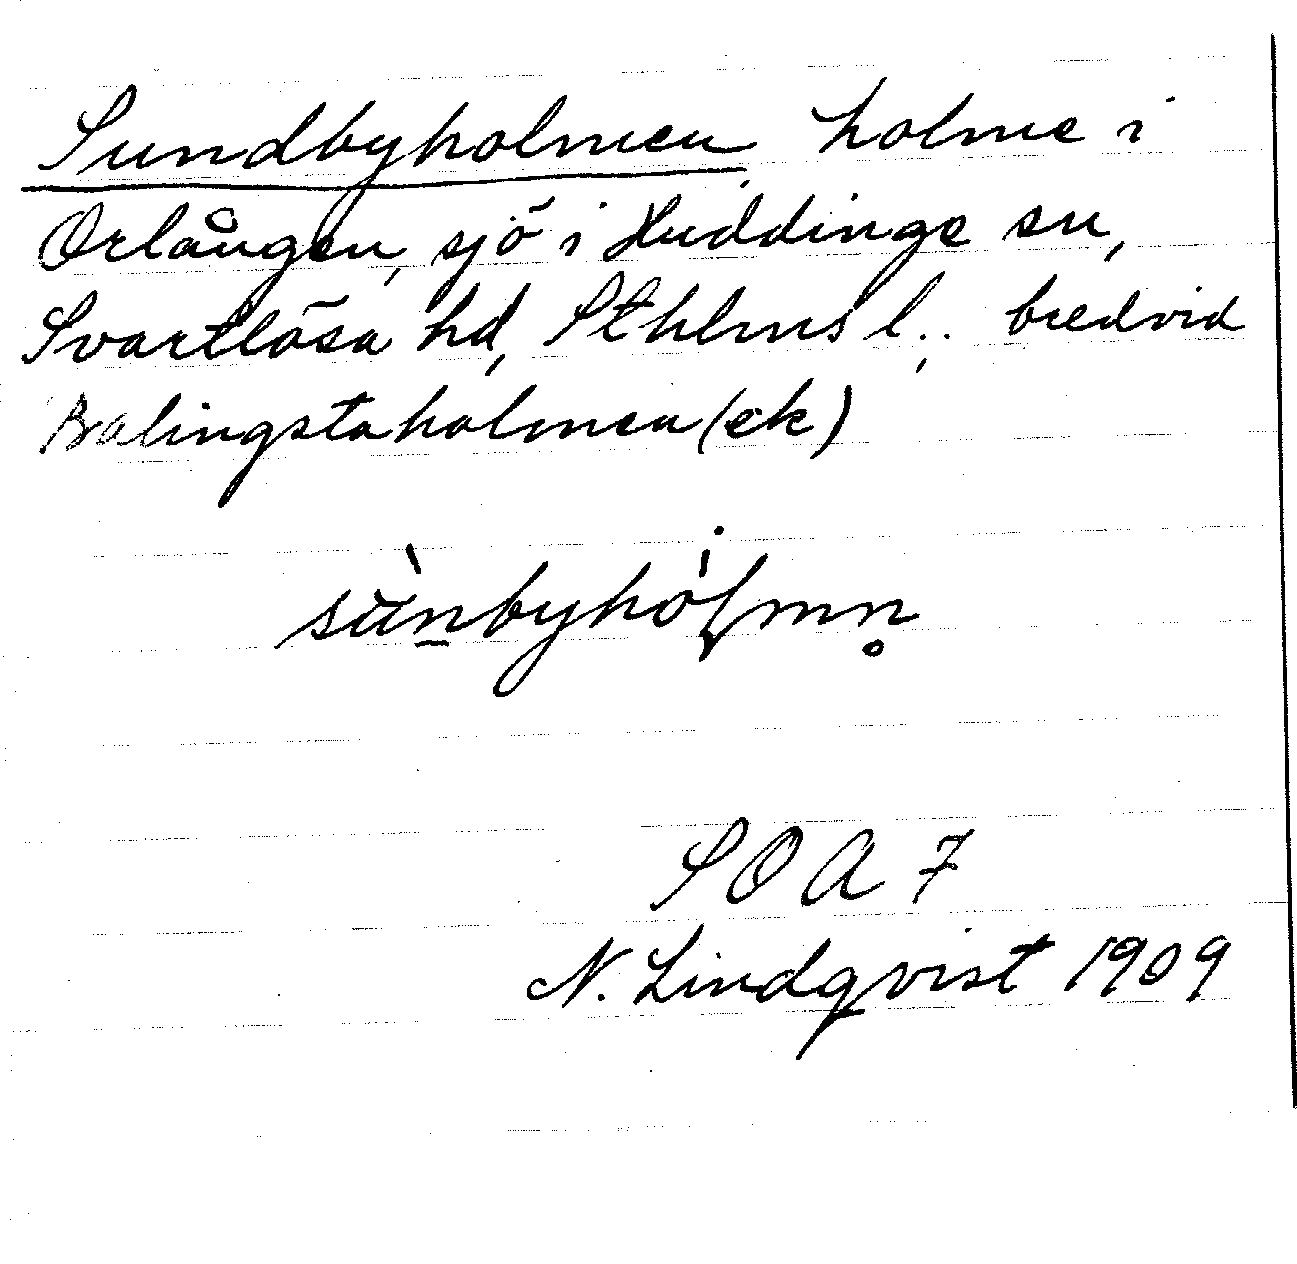 Sundbyholmen holme i
Orlången, sjö i Huddinge sn,
Svartlösa hd, Sthlms l., bredvid
Balingstaholmen (ek)
sùnbyhólmn̥
SOA 7
N. Lindqvist 1909